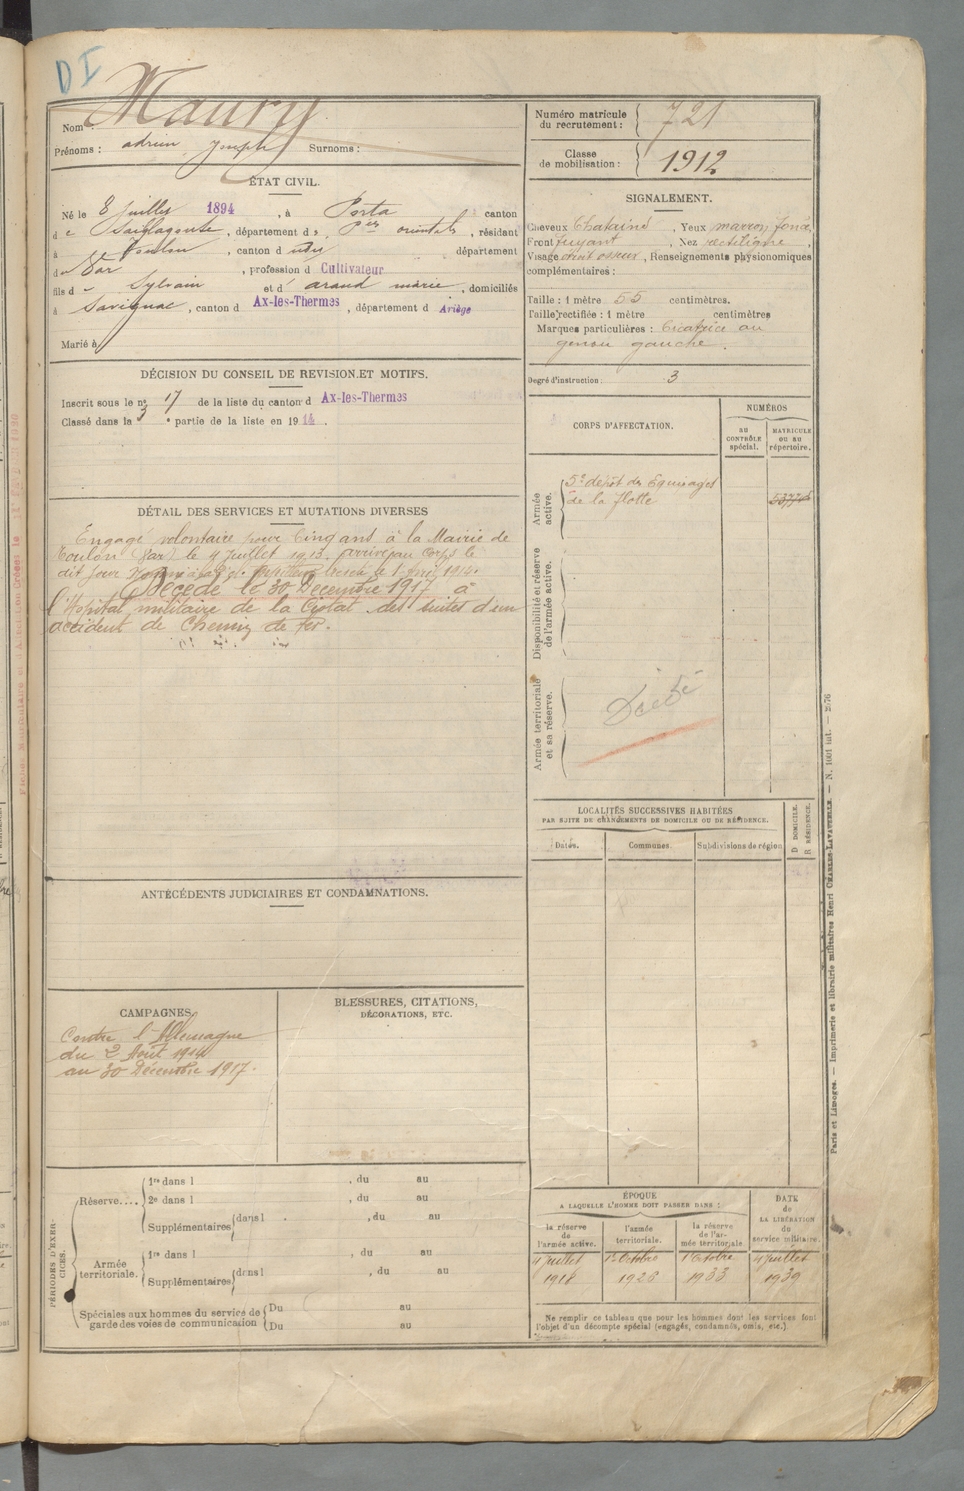 DI
Nom : Maury
Prénoms : adrien Joseph Surnoms :
ÉTAT CIVIL.
Né le 8 juillet 1894, à Porta, canton
de Saillagouse, département ds Pées orientals, résidant
à Toulon, canton d udis département
du Var, profession d Cultivateur
fils d Sylvain et d arand marie, domiciliés
à Savignac, canton d Ax-les-Thermes, département d Ariège
Marié à
DÉCISION DU CONSEIL DE REVISION ET MOTIFS.
Inscrit sous le n° 17 de la liste du canton d Ax-les-Thermes
Classé dans la 3e partie de la liste en 1914.
DÉTAIL DES SERVICES ET MUTATIONS DIVERSES
Engagé volontaire pour Cinq ans à la Mairie de
Toulon (Var) le 4 juillet 1913. arrivé au Corps le
dit jour 1914.
Décédé le 30 Décembre 1917 à
l'Hopital militaire de la Ciotat des suites d'un
accident de Chemin de fer.
ANTÉCÉDENTS JUDICIAIRES ET CONDAMNATIONS.
CAMPAGNES.
Contre l'Allemagne
du 2 Août 1914
au 30 Décembre 1917.
BLESSURES, CITATIONS,
DÉCORATIONS, ETC.
PÉRIODES D'EXERCICES.
Réserve....
1re dans l , du au
2e dans l , du au
Supplémentaires dans l , du au
Armée territoriale.
1re dans l , du au
Supplémentaires dans l , du au
Spéciales aux hommes du service de
garde des voies de communication
Du au
Du au
Numéro matricule
du recrutement : 721
Classe
de mobilisation : 1912
SIGNALEMENT.
Cheveux Chatains, Yeux marron foncé,
Front fuyant, Nez rectiligne,
Visage osseux, Renseignements physionomiques
complémentaires :
Taille : 1 mètre 55 centimètres.
Taille rectifiée : 1 mètre centimètres
Marques particulières : Cicatrice au
genou gauche.
Degré d'instruction : 3
CORPS D'AFFECTATION.
NUMÉROS
AU CONTRÔLE spécial.
MATRICULE OU AU répertoire.
Armée active.
5e dépôt des Equipages
de la flotte
Disponibilité et réserve de l'armée active.
Armée territoriale et sa réserve.
Décédé
LOCALITÉS SUCCESSIVES HABITÉES
PAR SUITE DE CHANGEMENTS DE DOMICILE OU DE RÉSIDENCE.
D DOMICILE.
R RÉSIDENCE.
Dates.
Communes.
Subdivisions de région
ÉPOQUE
A LAQUELLE L'HOMME DOIT PASSER DANS :
la réserve de l'armée active.
l'armée territoriale.
la réserve de l'armée territoriale
DATE de LA LIBÉRATION du service militaire.
4 juillet 1918
1er Octobre 1926
1er Octobre 1933
4 juillet 1939
Ne remplir ce tableau que pour les hommes dont les services font
l'objet d'un décompte spécial (engagés, condamnés, omis, etc.)
Paris et Limoges. — Imprimerie et librairie militaires Henri CHARLES-LAVAUZELLE. — N. 1001 int. — 2576